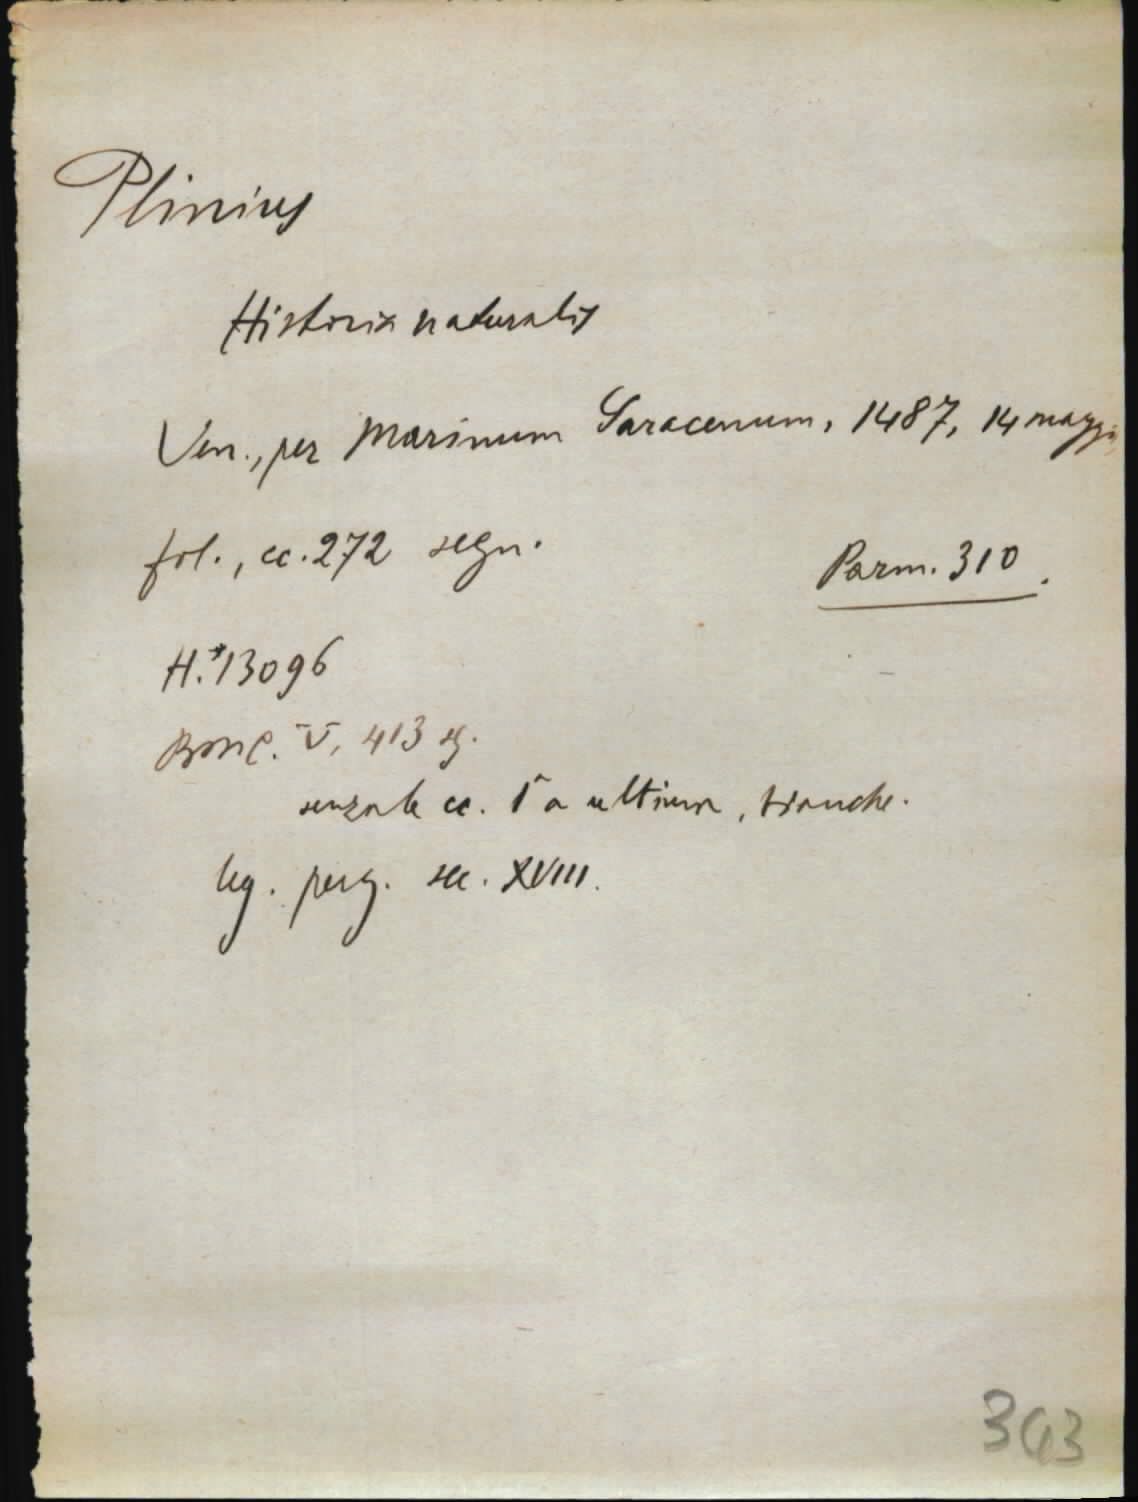 Plinius
Historia naturalis
Ven., per Marinum Saracenum, 1487, 14 maggio
fol., cc. 272 segn.
Parm. 310.
H.*13096
BMC. V, 413 sg.
senza le cc. 1ª a ultima, bianche.
leg. perg. sec. XVIII.
343